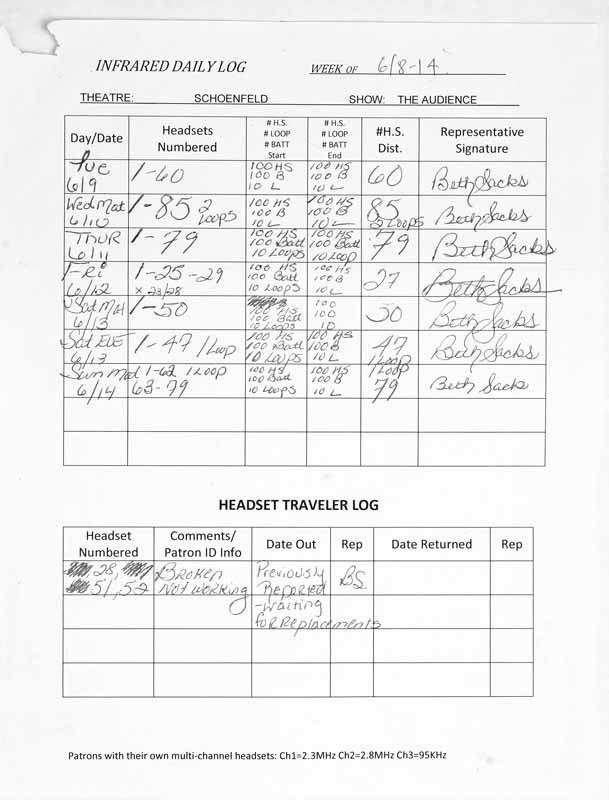 INFRARED DAILY LOG WEEK OF 6/8-14
THEATRE: SCHOENFELD SHOW: THE AUDIENCE
Day/Date Headsets Numbered # H.S. # LOOP # BATT Start # H.S. # LOOP # BATT End #H.S. Dist. Representative Signature
Tue 6/9 1-60 100 HS 100 B 10 L 100 HS 100 B 10 L 60 Beth Sacks
Wed Mat 6/10 1-85 2 Loops 100 HS 100 B 10 L 100 HS 100 B 10 L 85 2 Loops Beth Sacks
THUR 6/11 1-79 100 HS 100 Batt 10 Loops 100 HS 100 Batt 10 Loop 79 Beth Sacks
Fri 6/12 1-25-29 x 23/28 100 HS 100 Batt 10 Loops 100 HS 100 B 10 L 27 Beth Sacks
Sat Mat 6/13 1-50 100 HS 100 Batt 10 Loops 100 100 10 50 Beth Sacks
Sat EVE 6/13 1-47 1 Loop 100 HS 100 Batt 10 Loops 100 HS 100 B 10 L 47 1 Loop Beth Sacks
Sun Mat 6/14 1-62 1 LOOP 63-79 100 HS 100 Batt 10 LOOPS 100 HS 100 B 10 L 79 Beth Sacks
HEADSET TRAVELER LOG
Headset Numbered Comments/ Patron ID Info Date Out Rep Date Returned Rep
28, 51, 52 Broken Not working Previously Reported -waiting for Replacements BS.
Patrons with their own multi-channel headsets: Ch1=2.3MHz Ch2=2.8MHz Ch3=95KHz